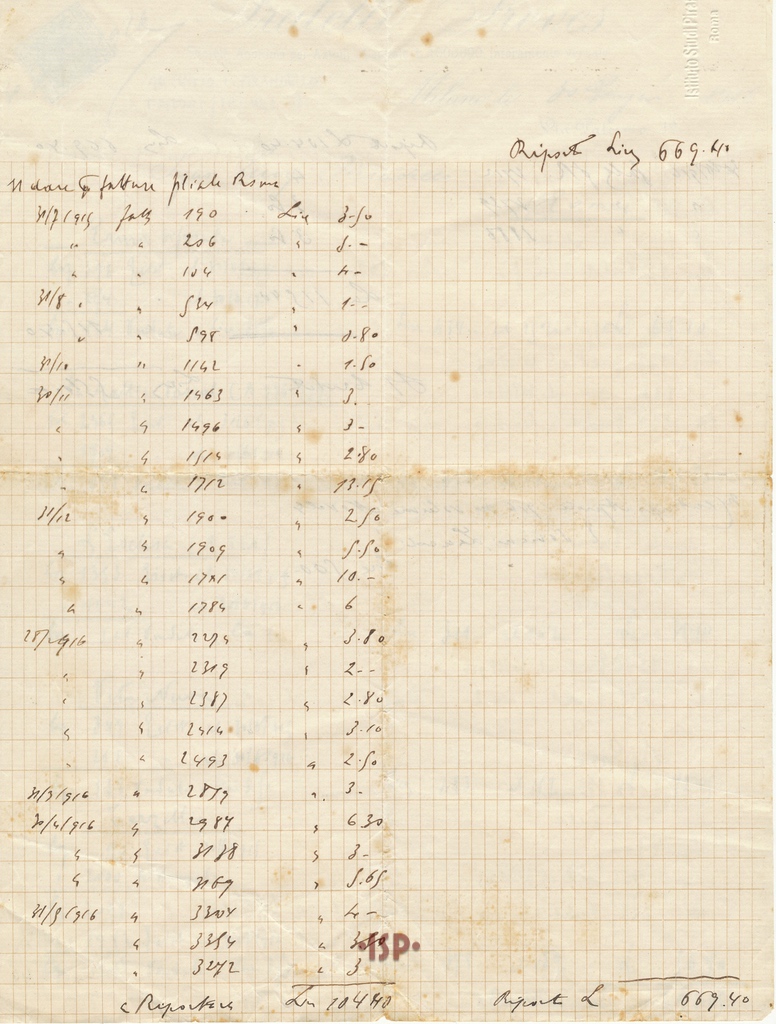 Istituto Studi Pira
Roma
Riporto Lire 669.40
fatture filiale Roma
31/7/915 fatt 190 Lire 3.50
" " 206 " 5.-
" " 104 " 4.-
31/8 " " 534 " 1.-
" " 598 " 8.80
31/10 " 1142 " 1.50
30/11 " 1463 " 3.
" " 1496 " 3-
" " 1514 " 2.80
" " 1712 " 13.15
31/12 " 1900 " 2.50
" " 1909 " 5.50
" " " 10.-
" " 1784 " 6
28/2/916 " 2274 " 3.80
" " 2319 " 2.-
" " 2387 " 2.80
" " 2414 " 3.10
" " 2493 " 2.50
31/3/916 " " 3-
30/4/916 " 2987 " 6.30
" " 3138 " 3-
" " 3169 " 5.65
31/5/916 " 3304 " 4-
" 3354 " 3.50
" 3272 " 3
a Riportare Lire 104.40 Riporto L 669.40
·ISP·